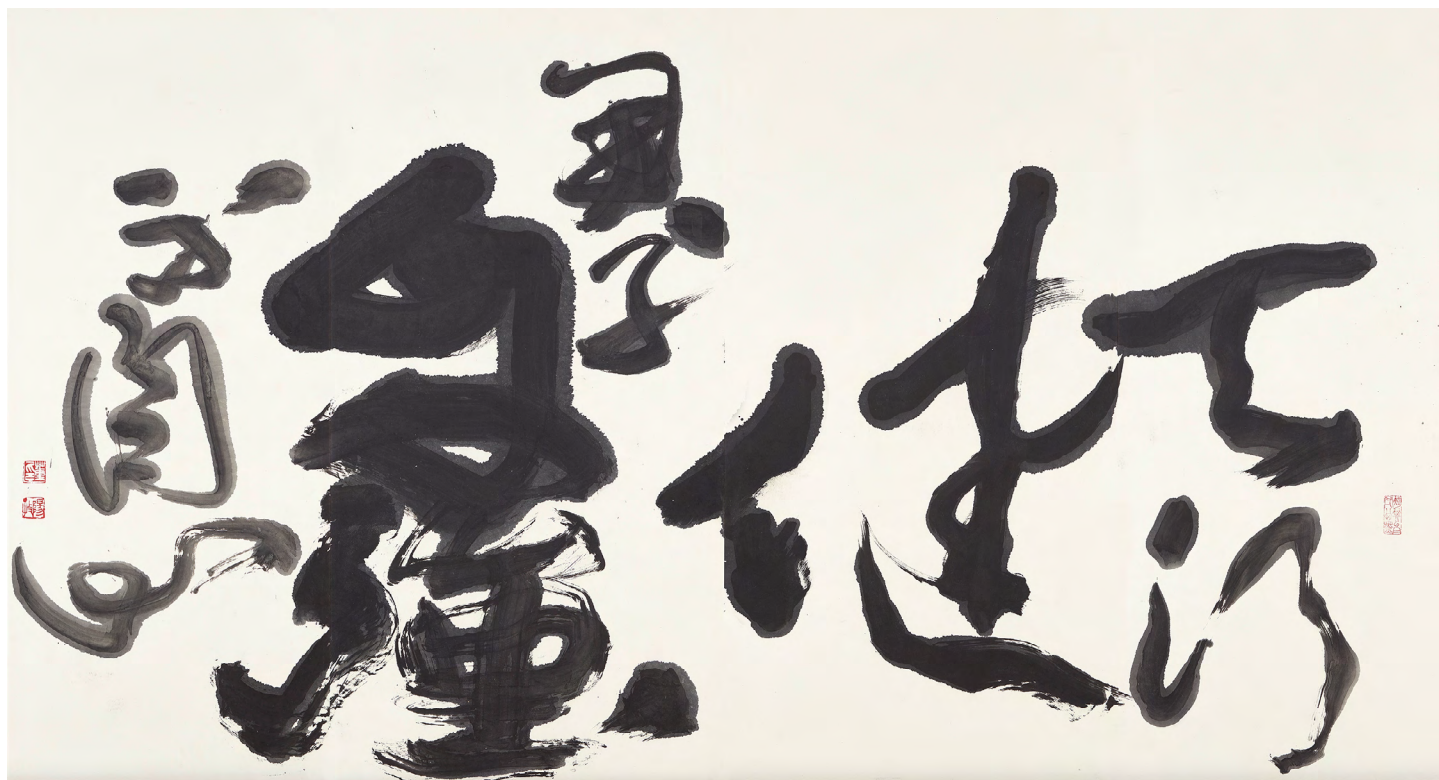 天行
健
君子以
自強
不息